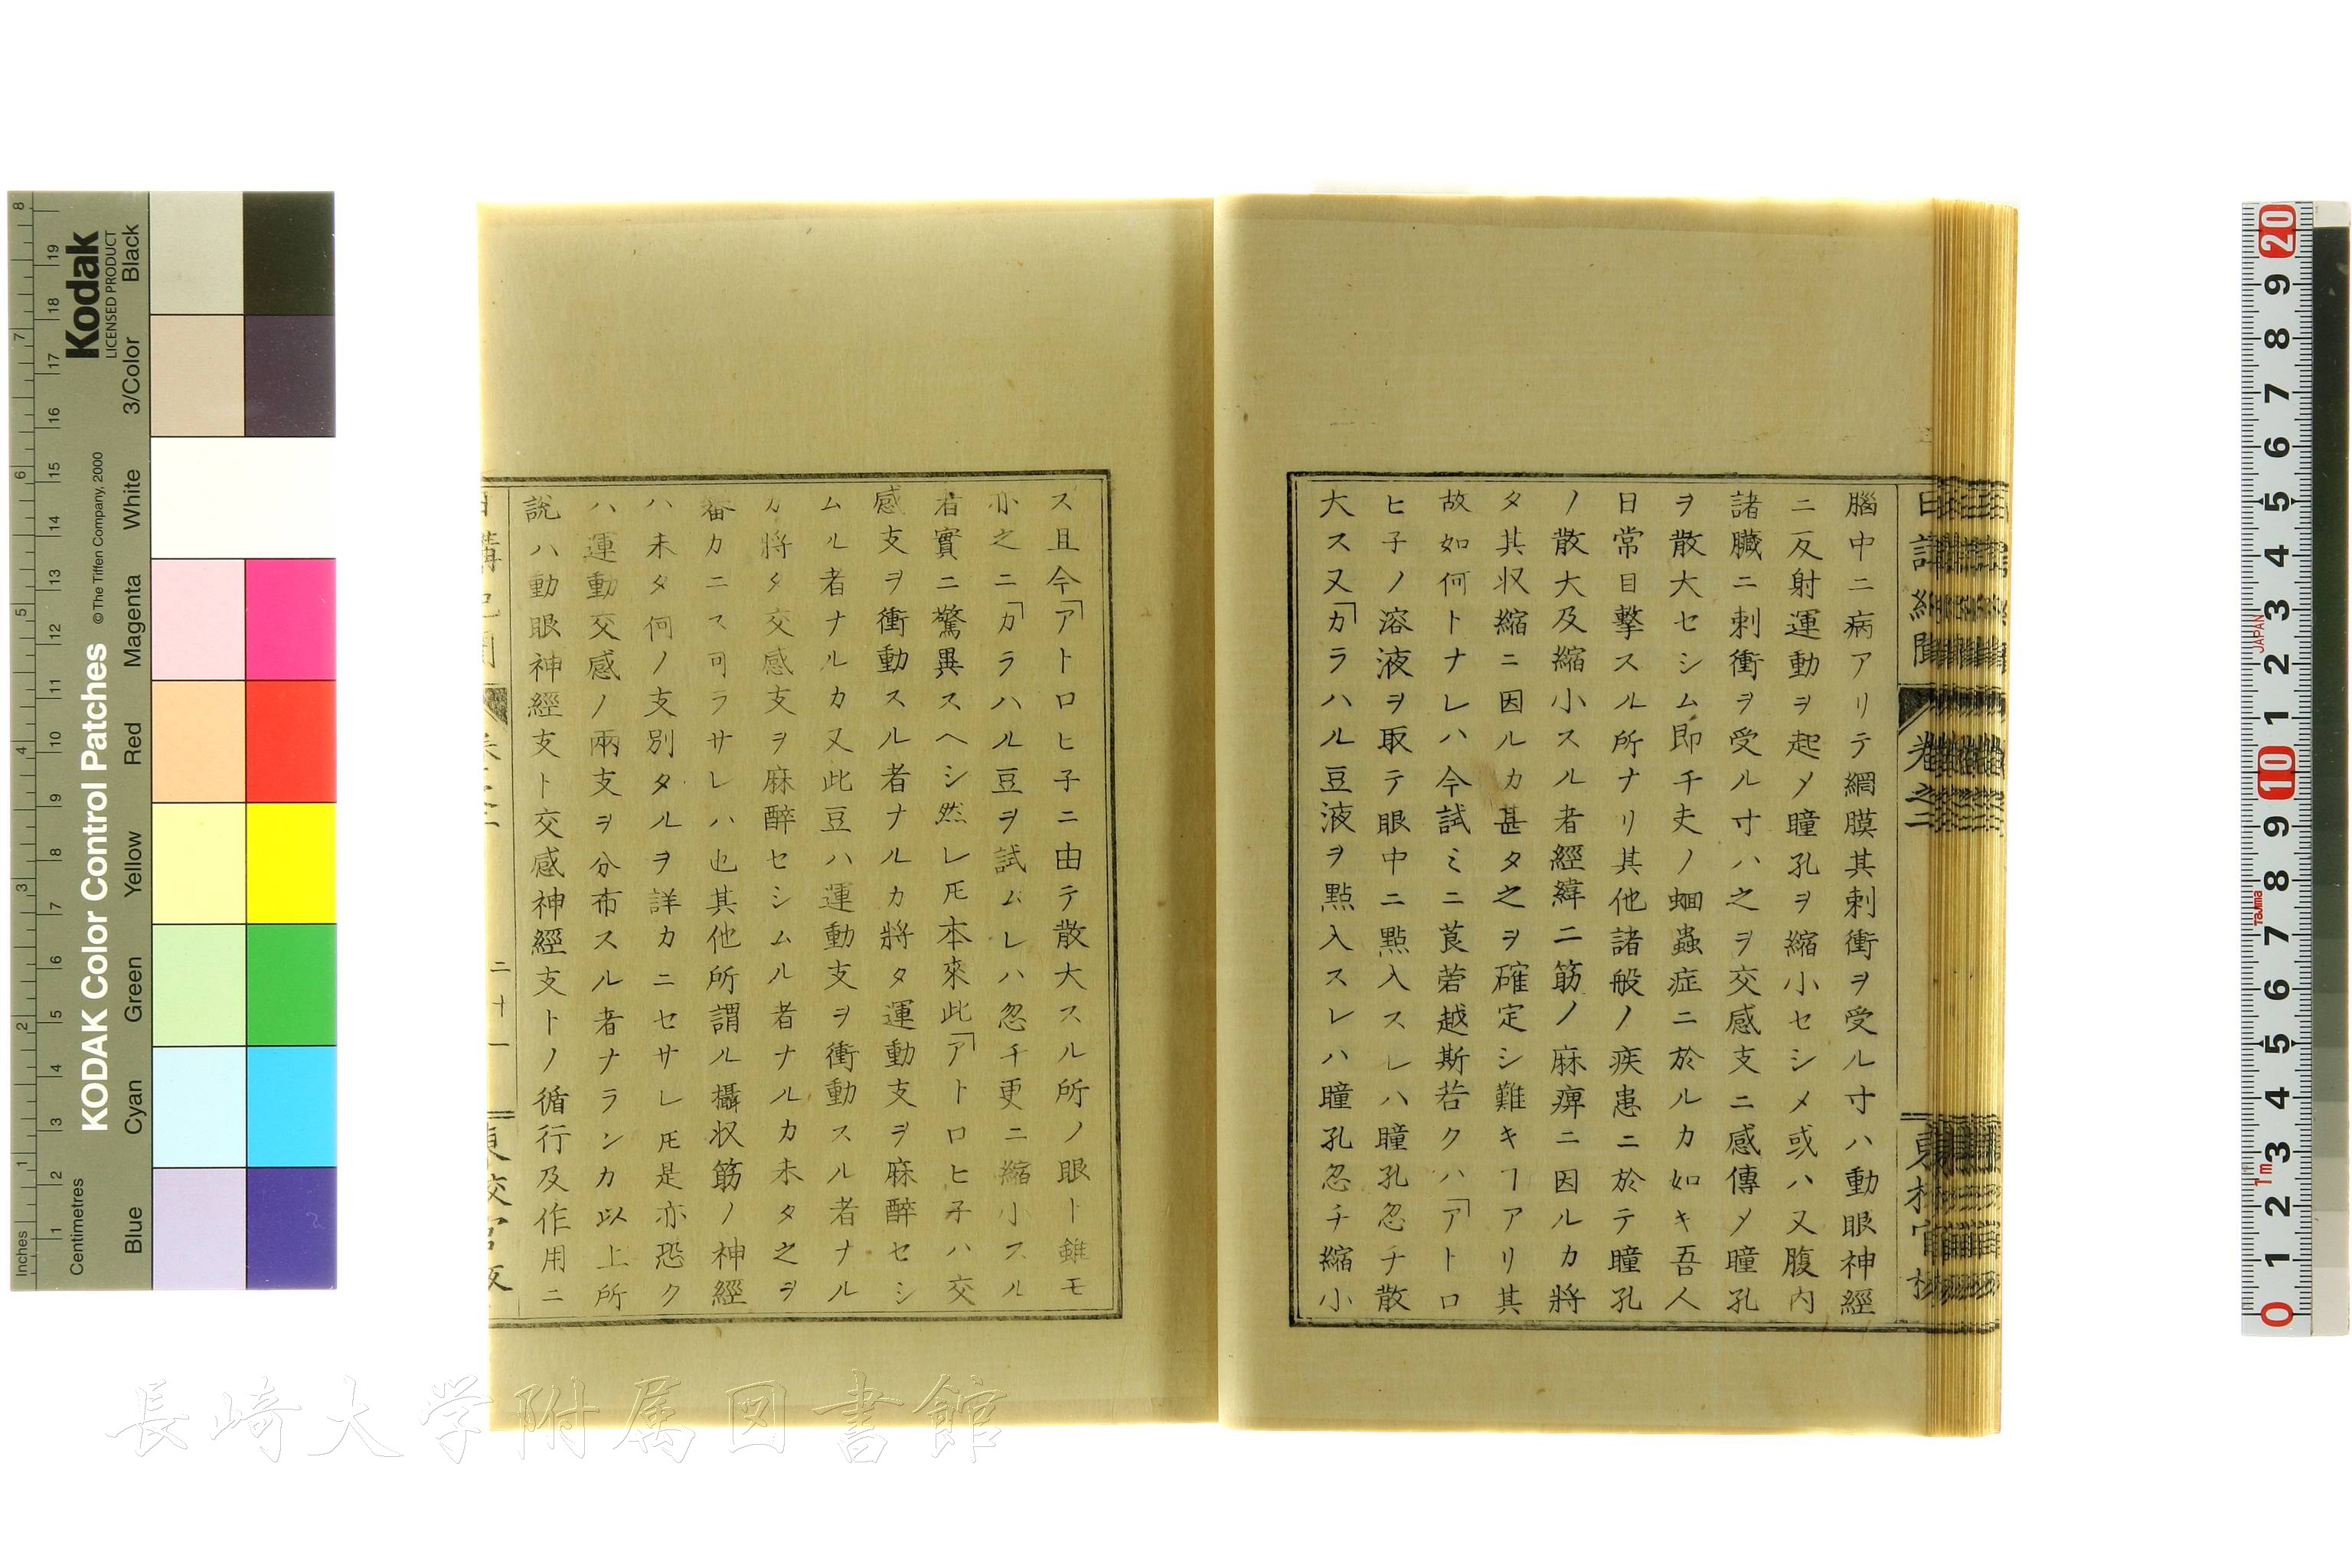 腦中ニ病アリテ網膜其刺衝ヲ受ル寸ハ動眼神經
ニ反射運動ヲ起〆瞳孔ヲ縮小セシメ或ハ又腹内
諸臓ニ刺衝ヲ受ル寸ハ之ヲ交感支ニ感傳〆瞳孔
ヲ散大セシム即チ夫ノ蛔蟲症ニ於ルカ如キ吾人
日常目擊スル所ナリ其他諸般ノ疾患ニ於テ瞳孔
ノ散大及縮小スル者經緯二筋ノ麻痺ニ因ルカ將
タ其収縮ニ因ルカ甚タ之ヲ確定シ難キヿアリ其
故如何トナレハ今試ミニ莨菪越斯若クハ「アトロ
ヒ子ノ溶液ヲ取テ眼中ニ點入スレハ瞳孔忽チ散
大ス又「カラハル豆液ヲ點入スレハ瞳孔忽チ縮小
ス且今「アトロヒ子ニ由テ散大スル所ノ眼ト雖モ
亦之ニ「カラハル豆ヲ試ムレハ忽チ更ニ縮小スル
者實ニ驚異スヘシ然レ𪜈本來此「アトロヒ子ハ交
感支ヲ衝動スル者ナルカ將タ運動支ヲ麻醉セシ
ムル者ナルカ又此豆ハ運動支ヲ衝動スル者ナル
カ將タ交感支ヲ麻醉セシムル者ナルカ未タ之ヲ
審カニス可ラサレハ也其他所謂ル攝収筋ノ神經
ハ未タ何ノ支別タルヲ詳カニセサレ𪜈是亦恐ク
ハ運動交感ノ兩支ヲ分布スル者ナランカ以上所
說ハ動眼神經支ト交感神經支トノ循行及作用ニ
二十一
卷之二
長崎大学附属図書館
Kodak
LICENSED PRODUCT
KODAK Color Control Patches
© The Tiffen Company, 2000
Inches
Centimetres
Blue
Cyan
Green
Yellow
Red
Magenta
White
3/Color
Black
JAPAN
Tajima
1m